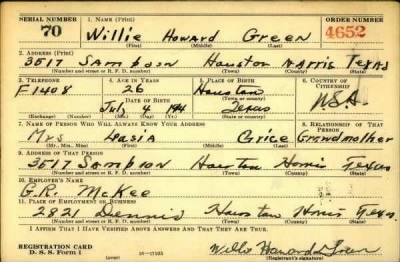 SERIAL NUMBER 1. NAME (Print) ORDER NUMBER
70 Willie Howard Green 4652
(First) (Middle) (Last)
2. ADDRESS (Print)
3517 Sampson Houston Harris Texas
(Number and street or R. F. D. number) (Town) (County) (State)
3. TELEPHONE 4. AGE IN YEARS 5. PLACE OF BIRTH 6. COUNTRY OF CITIZENSHIP
F1408 26 Houston
DATE OF BIRTH (Town or county)
July 4 1914 Texas USA
(Exchange) (Number) (Mo.) (Day) (Yr.) (State or country)
7. NAME OF PERSON WHO WILL ALWAYS KNOW YOUR ADDRESS 8. RELATIONSHIP OF THAT PERSON
Mrs Grice Grandmother
(Mr., Mrs., Miss) (First) (Middle) (Last)
9. ADDRESS OF THAT PERSON
3517 Sampson Houston Harris Texas
(Number and street or R. F. D. number) (Town) (County) (State)
10. EMPLOYER'S NAME
G.R. McKee
11. PLACE OF EMPLOYMENT OR BUSINESS
2821 Dennis Houston Harris Texas.
(Number and street or R. F. D. number) (Town) (County) (State)
I AFFIRM THAT I HAVE VERIFIED ABOVE ANSWERS AND THAT THEY ARE TRUE.
REGISTRATION CARD
D. S. S. Form 1 (over) 16—17105 Willie Howard Green
(Registrant's signature)